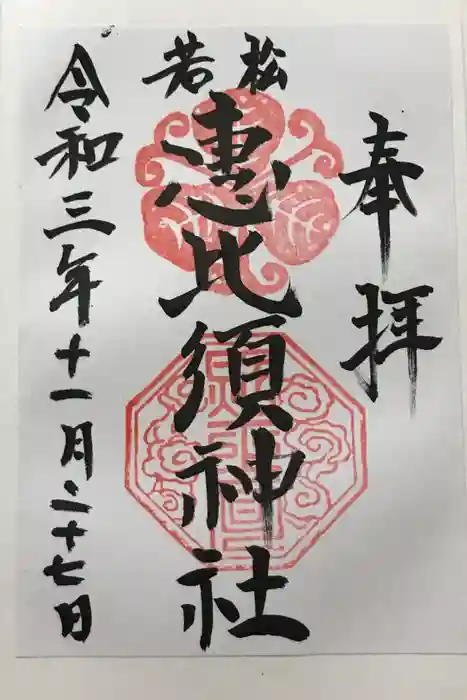 奉拝
若松
惠比須神社
令和三年十一月二十七日